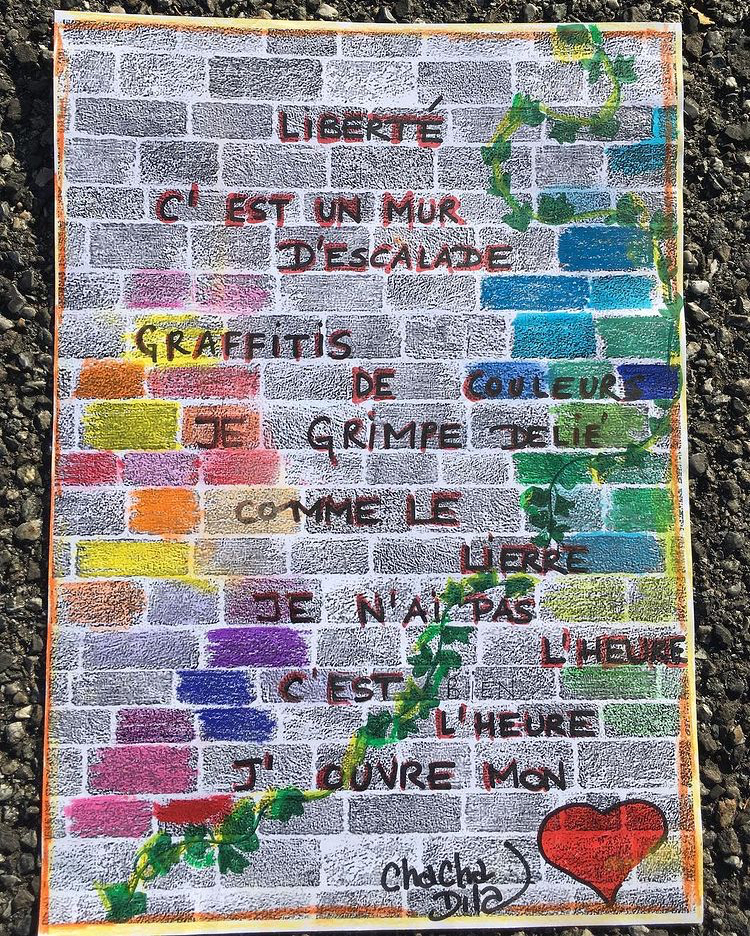 LIBERTÉ
C'EST UN MUR
D'ESCALADE
GRAFFITIS
DE COULEURS
JE GRIMPE DELIÉ
COMME LE
LIERRE
JE N'AI PAS
L'HEURE
C'EST BIEN
L'HEURE
J'OUVRE MON
ChaCha
Dila